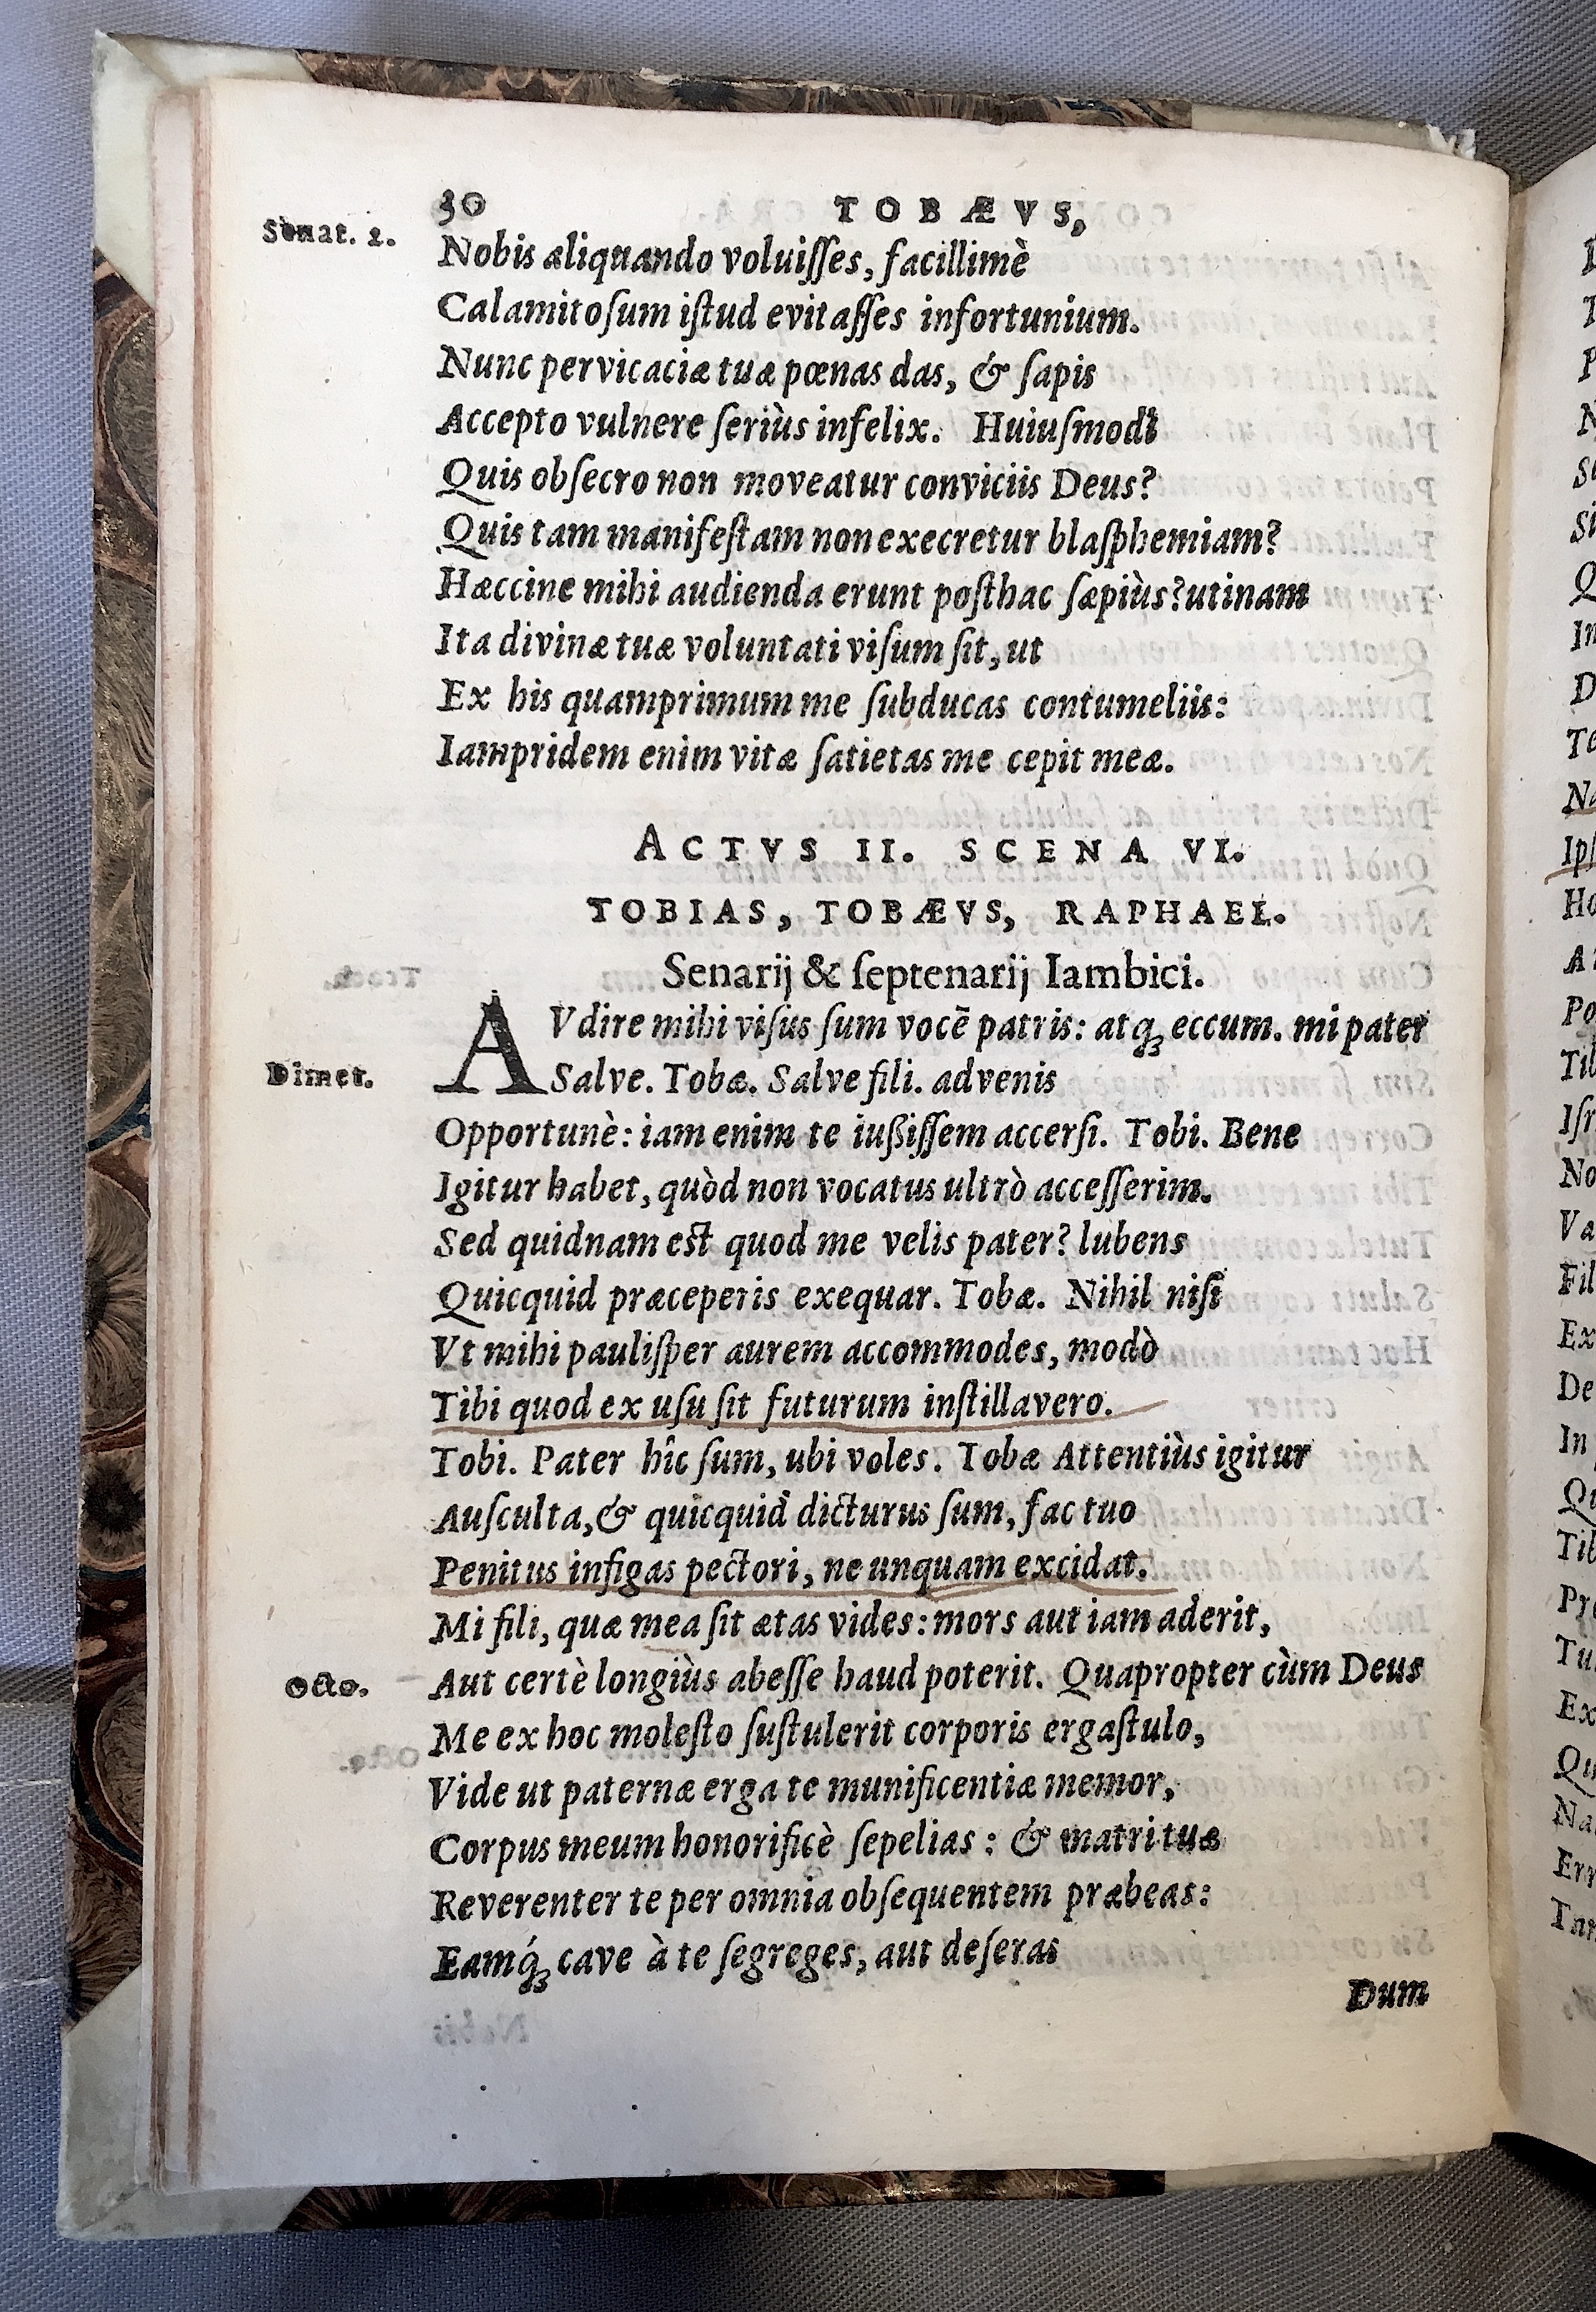 30 TOBÆVS,
Senat. 2.
Nobis aliquando voluiſſes, facillimè
Calamitoſum iſtud evitaſſes infortunium.
Nunc pervicaciæ tuæ pœnas das, & ſapis
Accepto vulnere ſeriùs infelix. Huiuſmodi
Quis obſecro non moveatur conviciis Deus?
Quis tam manifeſtam non execretur blaſphemiam?
Hæccine mihi audienda erunt poſthac ſæpiùs? utinam
Ita divinæ tuæ voluntati viſum ſit, ut
Ex his quamprimum me ſubducas contumeliis:
Iampridem enim vitæ ſatietas me cepit meæ.
ACTVS II. SCENA VI.
TOBIAS, TOBÆVS, RAPHAEL.
Senarij & ſeptenarij Iambici.
AVdire mihi viſus ſum vocē patris: atq; eccum. mi pater
Dimet.
Salve. Tobæ. Salve fili. advenis
Opportunè: iam enim te iußiſſem accerſi. Tobi. Bene
Igitur habet, quòd non vocatus ultrò acceſſerim.
Sed quidnam est quod me velis pater? lubens
Quicquid præceperis exequar. Tobæ. Nihil niſi
Vt mihi pauliſper aurem accommodes, modò
Tibi quod ex uſu ſit futurum inſtillavero.
Tobi. Pater hîc ſum, ubi voles. Tobæ Attentiùs igitur
Auſculta, & quicquid dicturus ſum, fac tuo
Penitus infigas pectori, ne unquam excidat.
Mi fili, quæ mea ſit ætas vides: mors aut iam aderit,
Octo.
Aut certè longiùs abeſſe haud poterit. Quapropter cùm Deus
Me ex hoc moleſto ſuſtulerit corporis ergaſtulo,
Vide ut paternæ erga te munificentiæ memor,
Corpus meum honorificè ſepelias: & matri tuæ
Reverenter te per omnia obſequentem præbeas:
Eamq́; cave à te ſegreges, aut deſeras
Dum